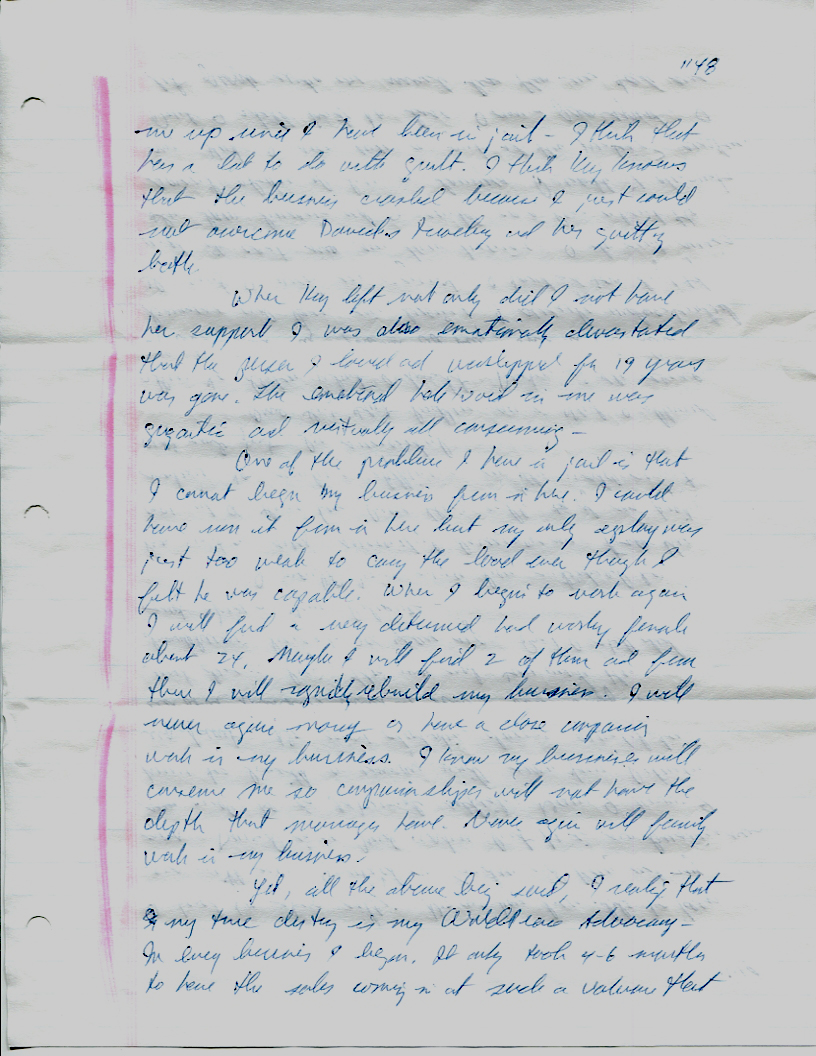 "48
me up since I have been in jail - I think that
has a lot to do with guilt. I think Kay knows
that the business crashed because I just could
not overcome Jewelry and her quitting
both.
When Kay left not only did I not have
her support I was also emotionally devastated
that the person I loved and worshipped for 19 years
was gone. The emotional in me was
gigantic and virtually all consuming -
One of the problems I have in jail is that
I cannot begin my business from in here. I could
have run it from in here but my only was
just too weak to carry the load even though I
felt he was capable. When I begin to work again
I will find a very determined hard working female
about 24. Maybe I will find 2 of them and from
there I will rapidly rebuild my business. I will
never again marry or have a close companion
work in my business. I know my businesses will
consume me so companionships will not have the
depth that marriages have. Never again will family
work in my business.
Yet, all the above being said, I realize that
my true destiny is my Advocacy -
In every business I began. It only took 4-6 months
to have the sales coming in at such a volume that